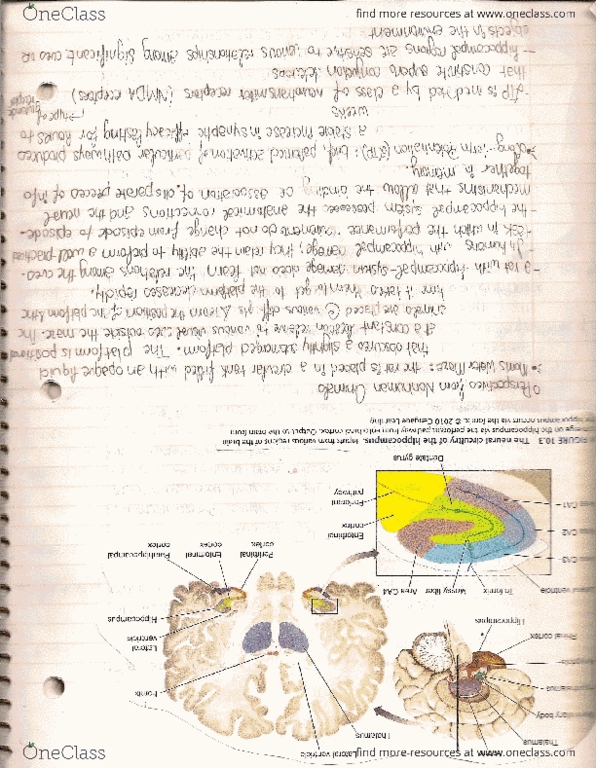 OneClass
find more resources at www.oneclass.com
Thalamus
Hippocampus
Rhinal cortex
Lateral ventricle
Thalamus
Fornix
Lateral
ventricle
Hippocampus
Perirhinal
cortex
Entorhinal
cortex
Parahippocampal
cortex
To fornix
Mossy fiber
Area CA4
CA3
CA2
CA1
Entorhinal
cortex
Perforant
pathway
Dentate gyrus
FIGURE 10.3 The neural circuitry of the hippocampus. Inputs from various regions of the brain
on the hippocampus via the perforant pathway from entorhinal cortex. Output to the brain from
hippocampus occurs via the fornix. © 2010 Cengage Learning
Perspectives from Nonhuman Animals
Morris Water Maze: the rat is placed in a circular tank filled with an opaque liquid
that obscures a slightly submerged platform. The platform is positioned
at a constant location relative to various visual cues outside the maze. The
animals are placed @ various diff pts from the position of the platform & the
time it takes them to get to the platform decreases rapidly.
- a rat with hippocampal-system damage does not learn the relations among the cues
- In humans with hippocampal damage, they retain the ability to perform a well practiced
task in which the performance elements do not change from episode to episode
- the hippocampal system possesses the anatomical connections and the neural
mechanisms that allow the binding or association of disparate pieces of info
together in memory
Long-term Potentiation (LTP): brief patterned activation of particular pathways produces
a stable increase in synaptic efficacy lasting for hours to
weeks
- LTP is mediated by a class of neurotransmitter receptors (NMDA receptors)
type of
glutamate
receptor
that constitute superb conjunction detectors
- hippocampal regions are sensitive to various relationships among significant cues or
objects in the environment
OneClass
find more resources at www.oneclass.com